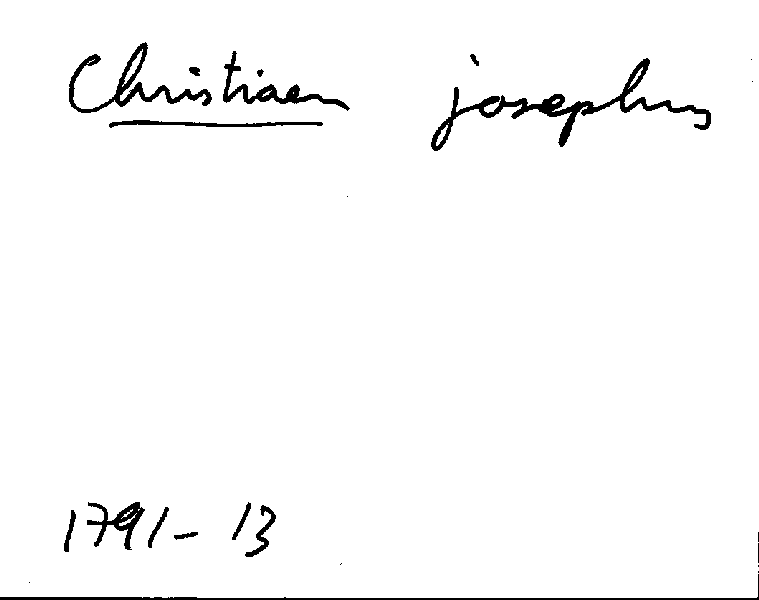 Christiaen josephus
1791 - 13